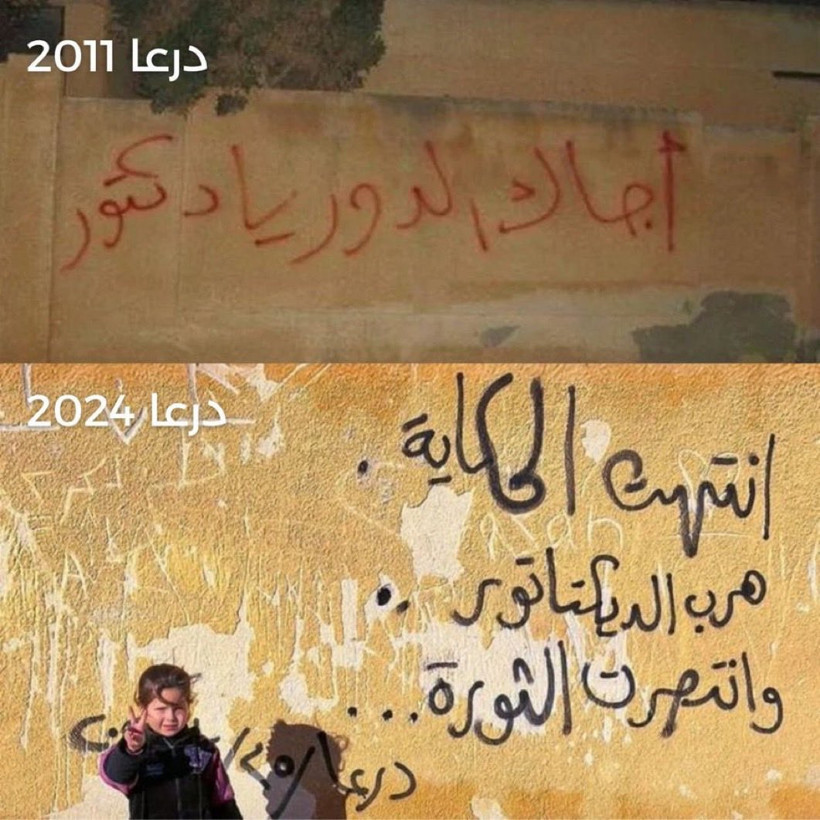 درعا 2011
أجاك الدور يا دكتور
درعا 2024
انتهت الحكاية.
هرب الديكتاتور ..
وانتصرت الثورة...
درعا